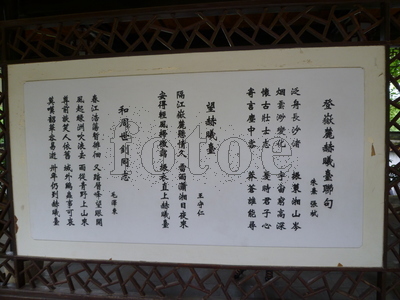 登嶽麓赫曦臺聯句
朱熹 張栻
泛舟長沙渚 振策湘山岑
烟雲渺變化 宇宙窮高深
懷古壯士志 憂時君子心
寄言塵中客 莽蒼誰能尋
望赫曦臺
王守仁
隔江嶽麓懸情久 雷雨瀟湘日夜來
安得輕風掃微靄 振衣直上赫曦臺
和周世釗同志
毛澤東
春江浩蕩暫徘徊 又踏層峰望眼開
風起綠洲吹浪去 雨從青野上山來
尊前談笑人依舊 域外雞蟲事可哀
莫嘆韶華容易逝 卅年仍到赫曦臺
fotoe